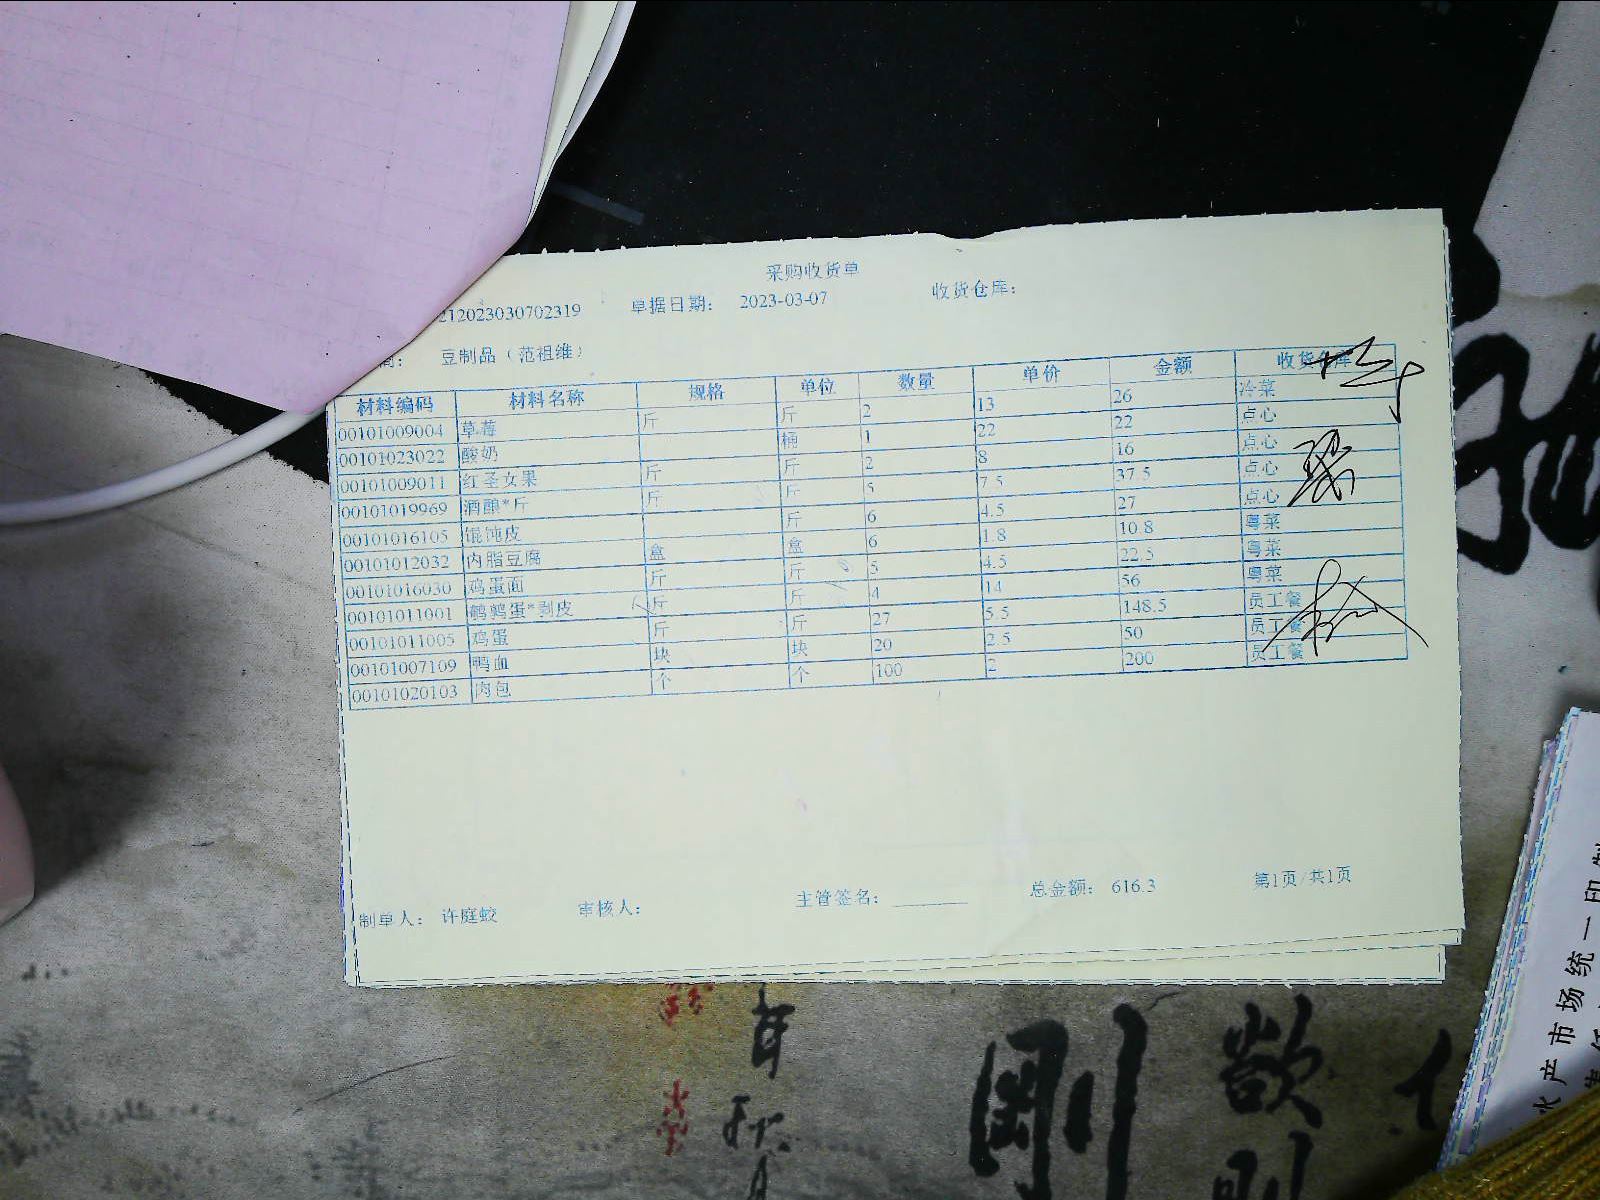 采购收货单
212023030702319 单据日期： 2023-03-07 收货仓库：
商： 豆制品（范祖维）
材料编码 材料名称 规格 单位 数量 单价 金额 收货仓库
00101009004 草莓 斤 斤 2 13 26 冷菜
00101023022 酸奶 桶 1 22 22 点心
00101009011 红圣女果 斤 斤 2 8 16 点心
00101019969 酒酿*斤 斤 斤 5 7.5 37.5 点心
00101016105 馄饨皮 斤 6 4.5 27 点心
00101012032 内脂豆腐 盒 盒 6 1.8 10.8 粤菜
00101016030 鸡蛋面 斤 斤 5 4.5 22.5 粤菜
00101011001 鹌鹑蛋*剥皮 斤 斤 4 14 56 粤菜
00101011005 鸡蛋 斤 斤 27 5.5 148.5 员工餐
00101007109 鸭血 块 块 20 2.5 50 员工餐
00101020103 肉包 个 个 100 2 200 员工餐
制单人： 许庭蛟 审核人： 主管签名： 总金额： 616.3 第1页/共1页
水产市场统一印制
剛
欲